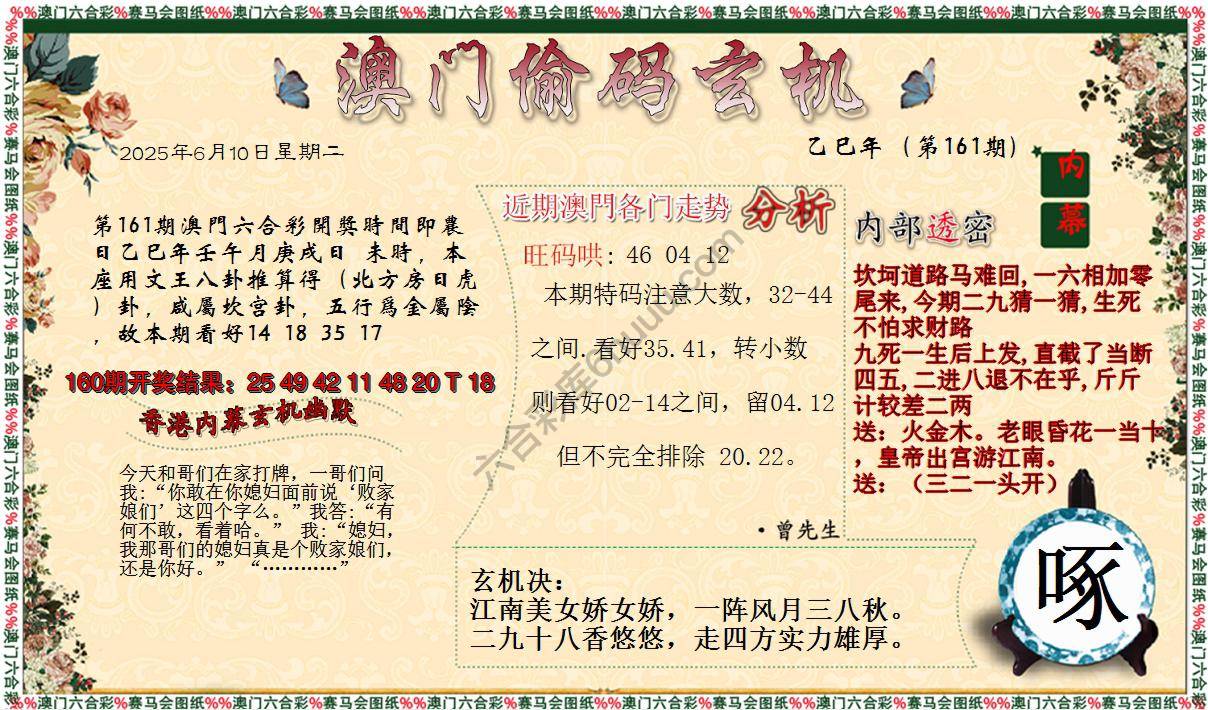 %%澳门六合彩%赛马会图纸%%澳门六合彩%赛马会图纸%%澳门六合彩%赛马会图纸%%澳门六合彩%赛马会图纸%%澳门六合彩%赛马会图纸%%
澳门偷码玄机
2025年6月10日星期二
乙巳年（第161期）
内幕
第161期澳門六合彩開獎時間即農
日乙巳年壬午月庚戌日 未時，本
座用文王八卦推算得（北方房日虎
）卦，咸屬坎宫卦，五行爲金屬陰
，故本期看好14 18 35 17
160期开奖结果：25 49 42 11 48 20 T 18
香港内幕玄机幽默
今天和哥们在家打牌，一哥们问
我:“你敢在你媳妇面前说‘败家
娘们’这四个字么。”我答:“有
何不敢，看着哈。” 我:“媳妇，
我那哥们的媳妇真是个败家娘们，
还是你好。” “…………”
近期澳門各门走势 分析
旺码哄: 46 04 12
本期特码注意大数，32-44
之间.看好35.41，转小数
则看好02-14之间，留04.12
但不完全排除 20.22。
·曾先生
内部透密
坎坷道路马难回,一六相加零
尾来,今期二九猜一猜,生死
不怕求财路
九死一生后上发,直截了当断
四五,二进八退不在乎,斤斤
计较差二两
送：火金木。老眼昏花一当十
，皇帝出宫游江南。
送：（三二一头开）
玄机决：
江南美女娇女娇，一阵风月三八秋。
二九十八香悠悠，走四方实力雄厚。
啄